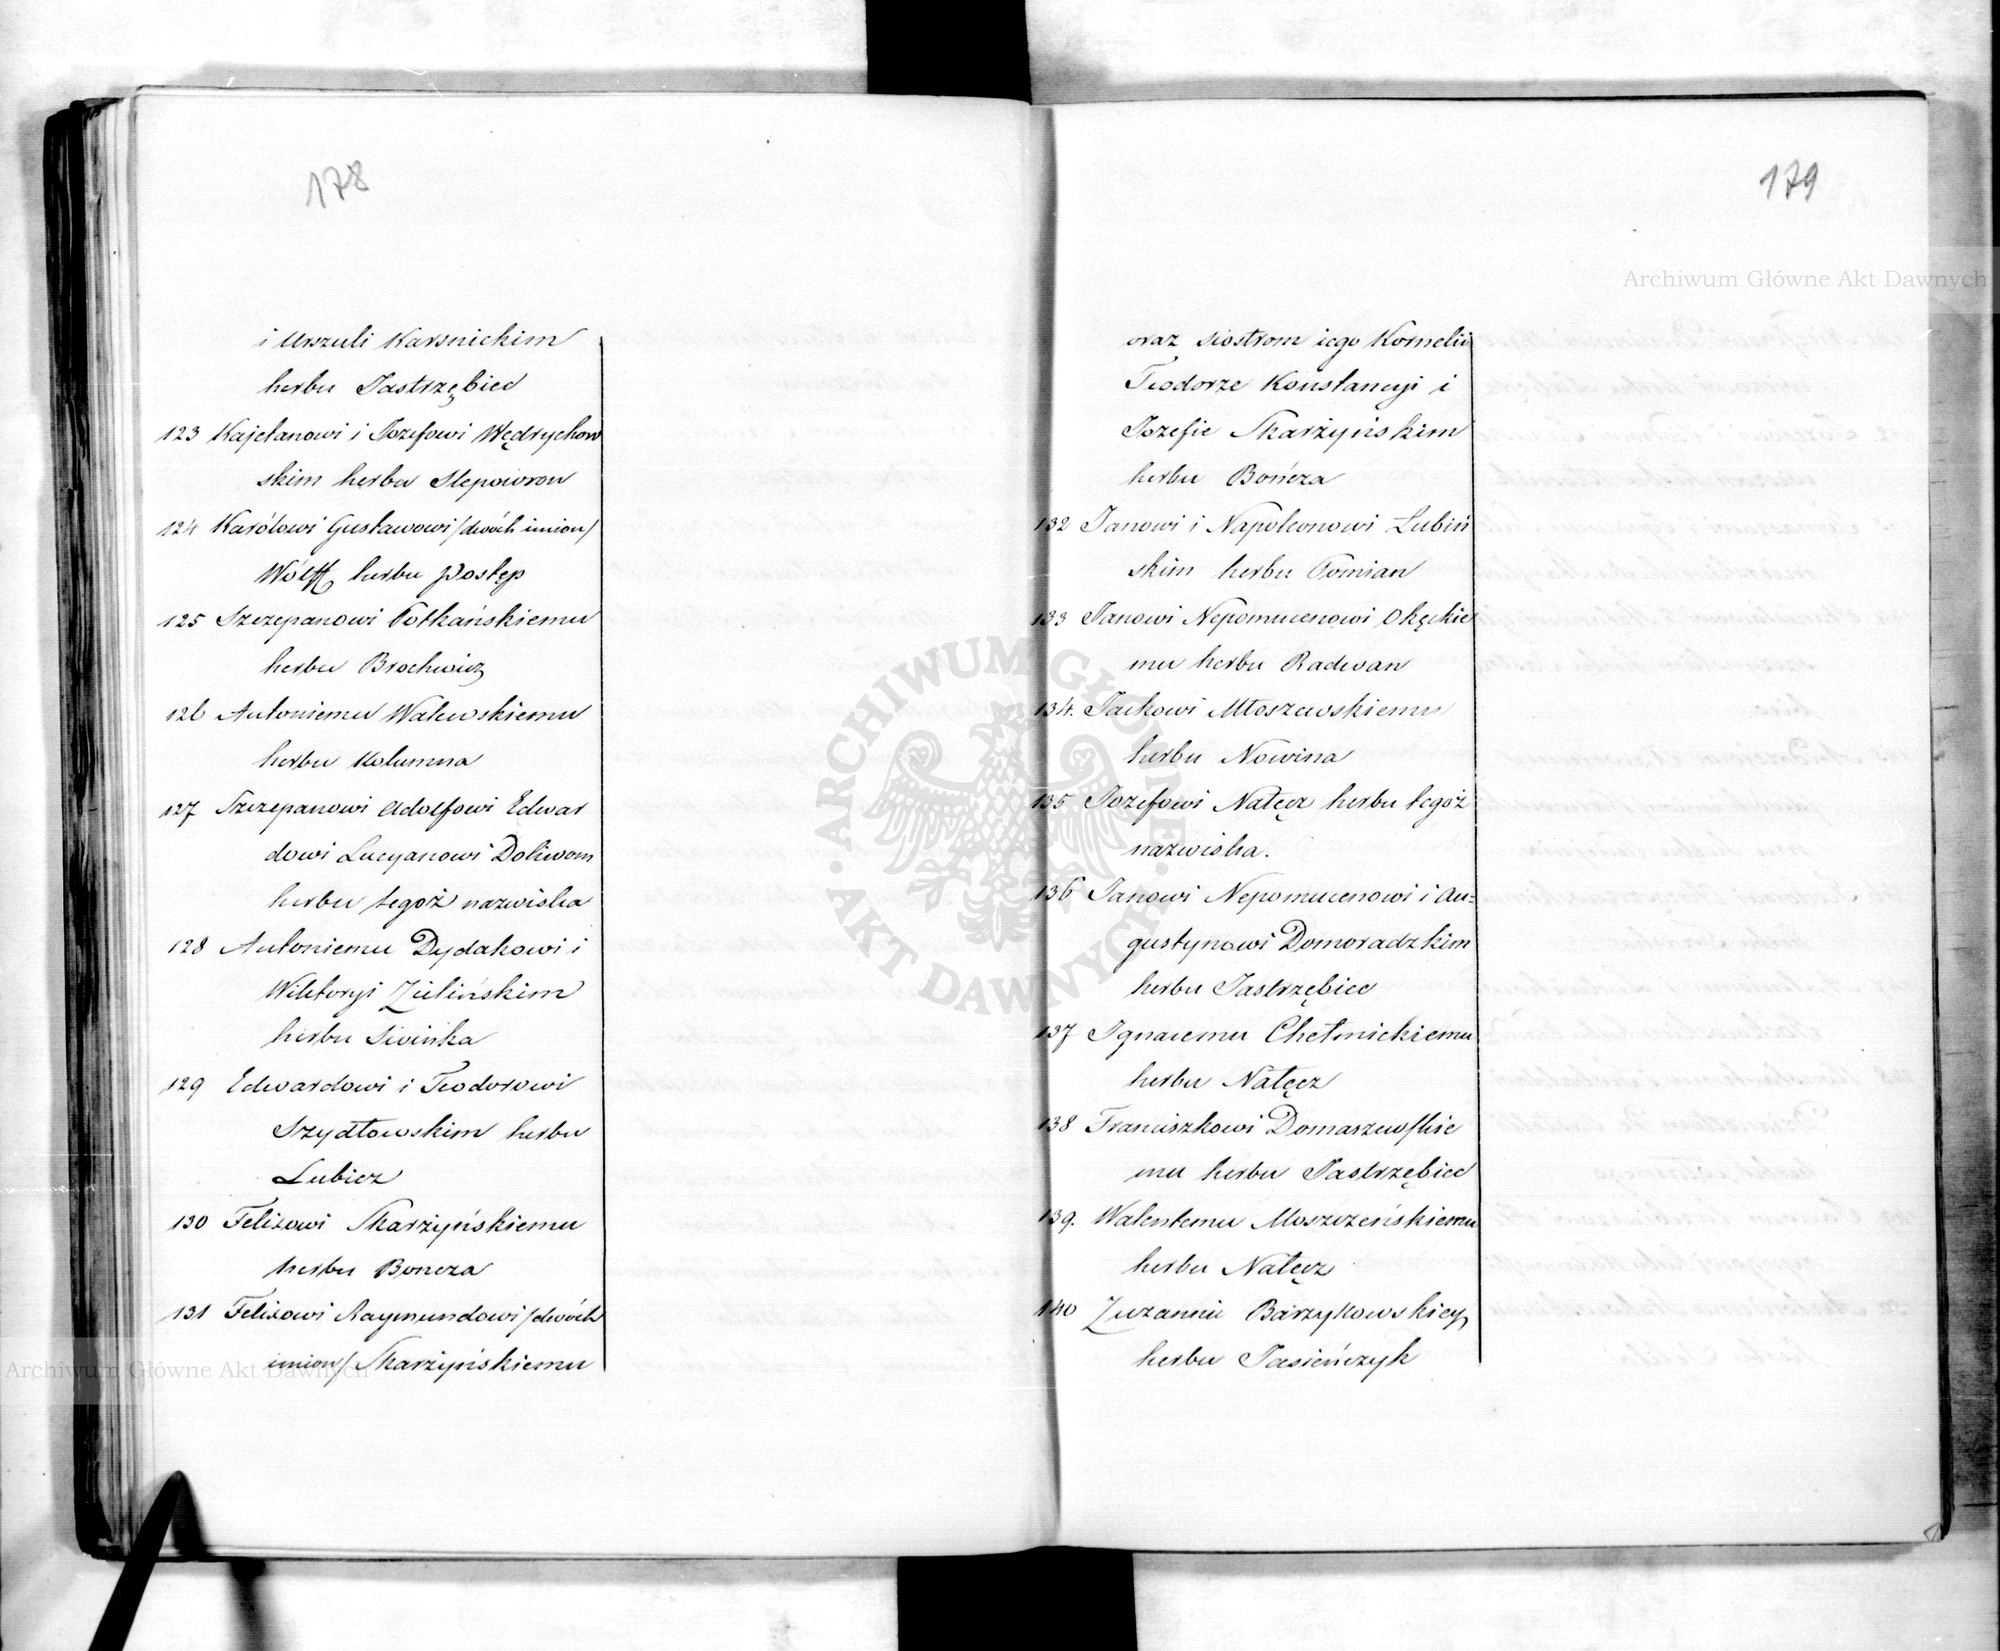 178
i Urszuli Karsnickim
herbu Jastrzębiec
123 Kajetanowi i Jozefowi Wędrychow
skim herbu Slepowron
124 Karólowi Gustawowi /dwóch imion/
Wolff herbu Postęp
125 Szczepanowi Potkańskiemu
herbu Brochwicz
126 Antoniemu Walewskiemu
herbu Kolumna
127 Szczepanowi Adolfowi Edwar
dowi Lucyanowi Doliwom
herbu tegoż nazwiska
128 Antoniemu Dydakowi i
Wiktoryi Zielińskim
herbu Swinka
129 Edwardowi i Teodorowi
Szydłowskim herbu
Lubicz
130 Felixowi Skarżyńskiemu
herbu Boncza
131 Felixowi Raymundowi /dwóch
imion/ Skarżyńskiemu
179
oraz siostrom iego Kornelii
Teodorze Konstancyi i
Jozefie Skarżyńskim
herbu Bończa
132 Janowi i Napoleonowi Łubiń
skim herbu Pomian
133 Janowi Nepomucenowi Okęckie
mu herbu Radwan
134. Jackowi Młoszewskiemu
herbu Nowina
135 Jozefowi Nałęcz herbu tegoż
nazwiska.
136 Janowi Nepomucenowi i Au=
gustynowi Domoradzkim
herbu Jastrzębiec
137 Ignacemu Chełmickiemu
herbu Nałęcz
138 Franciszkowi Domaszewskie
mu herbu Jastrzębiec
139. Walentemu Moszczeńskiemu
herbu Nałęcz
140 Zuzannie Barzykowskiey
herbu Jasieńczyk
Archiwum Główne Akt Dawnych
Archiwum Główne Akt Dawnych
ARCHIWUM GŁÓWNE AKT DAWNYCH